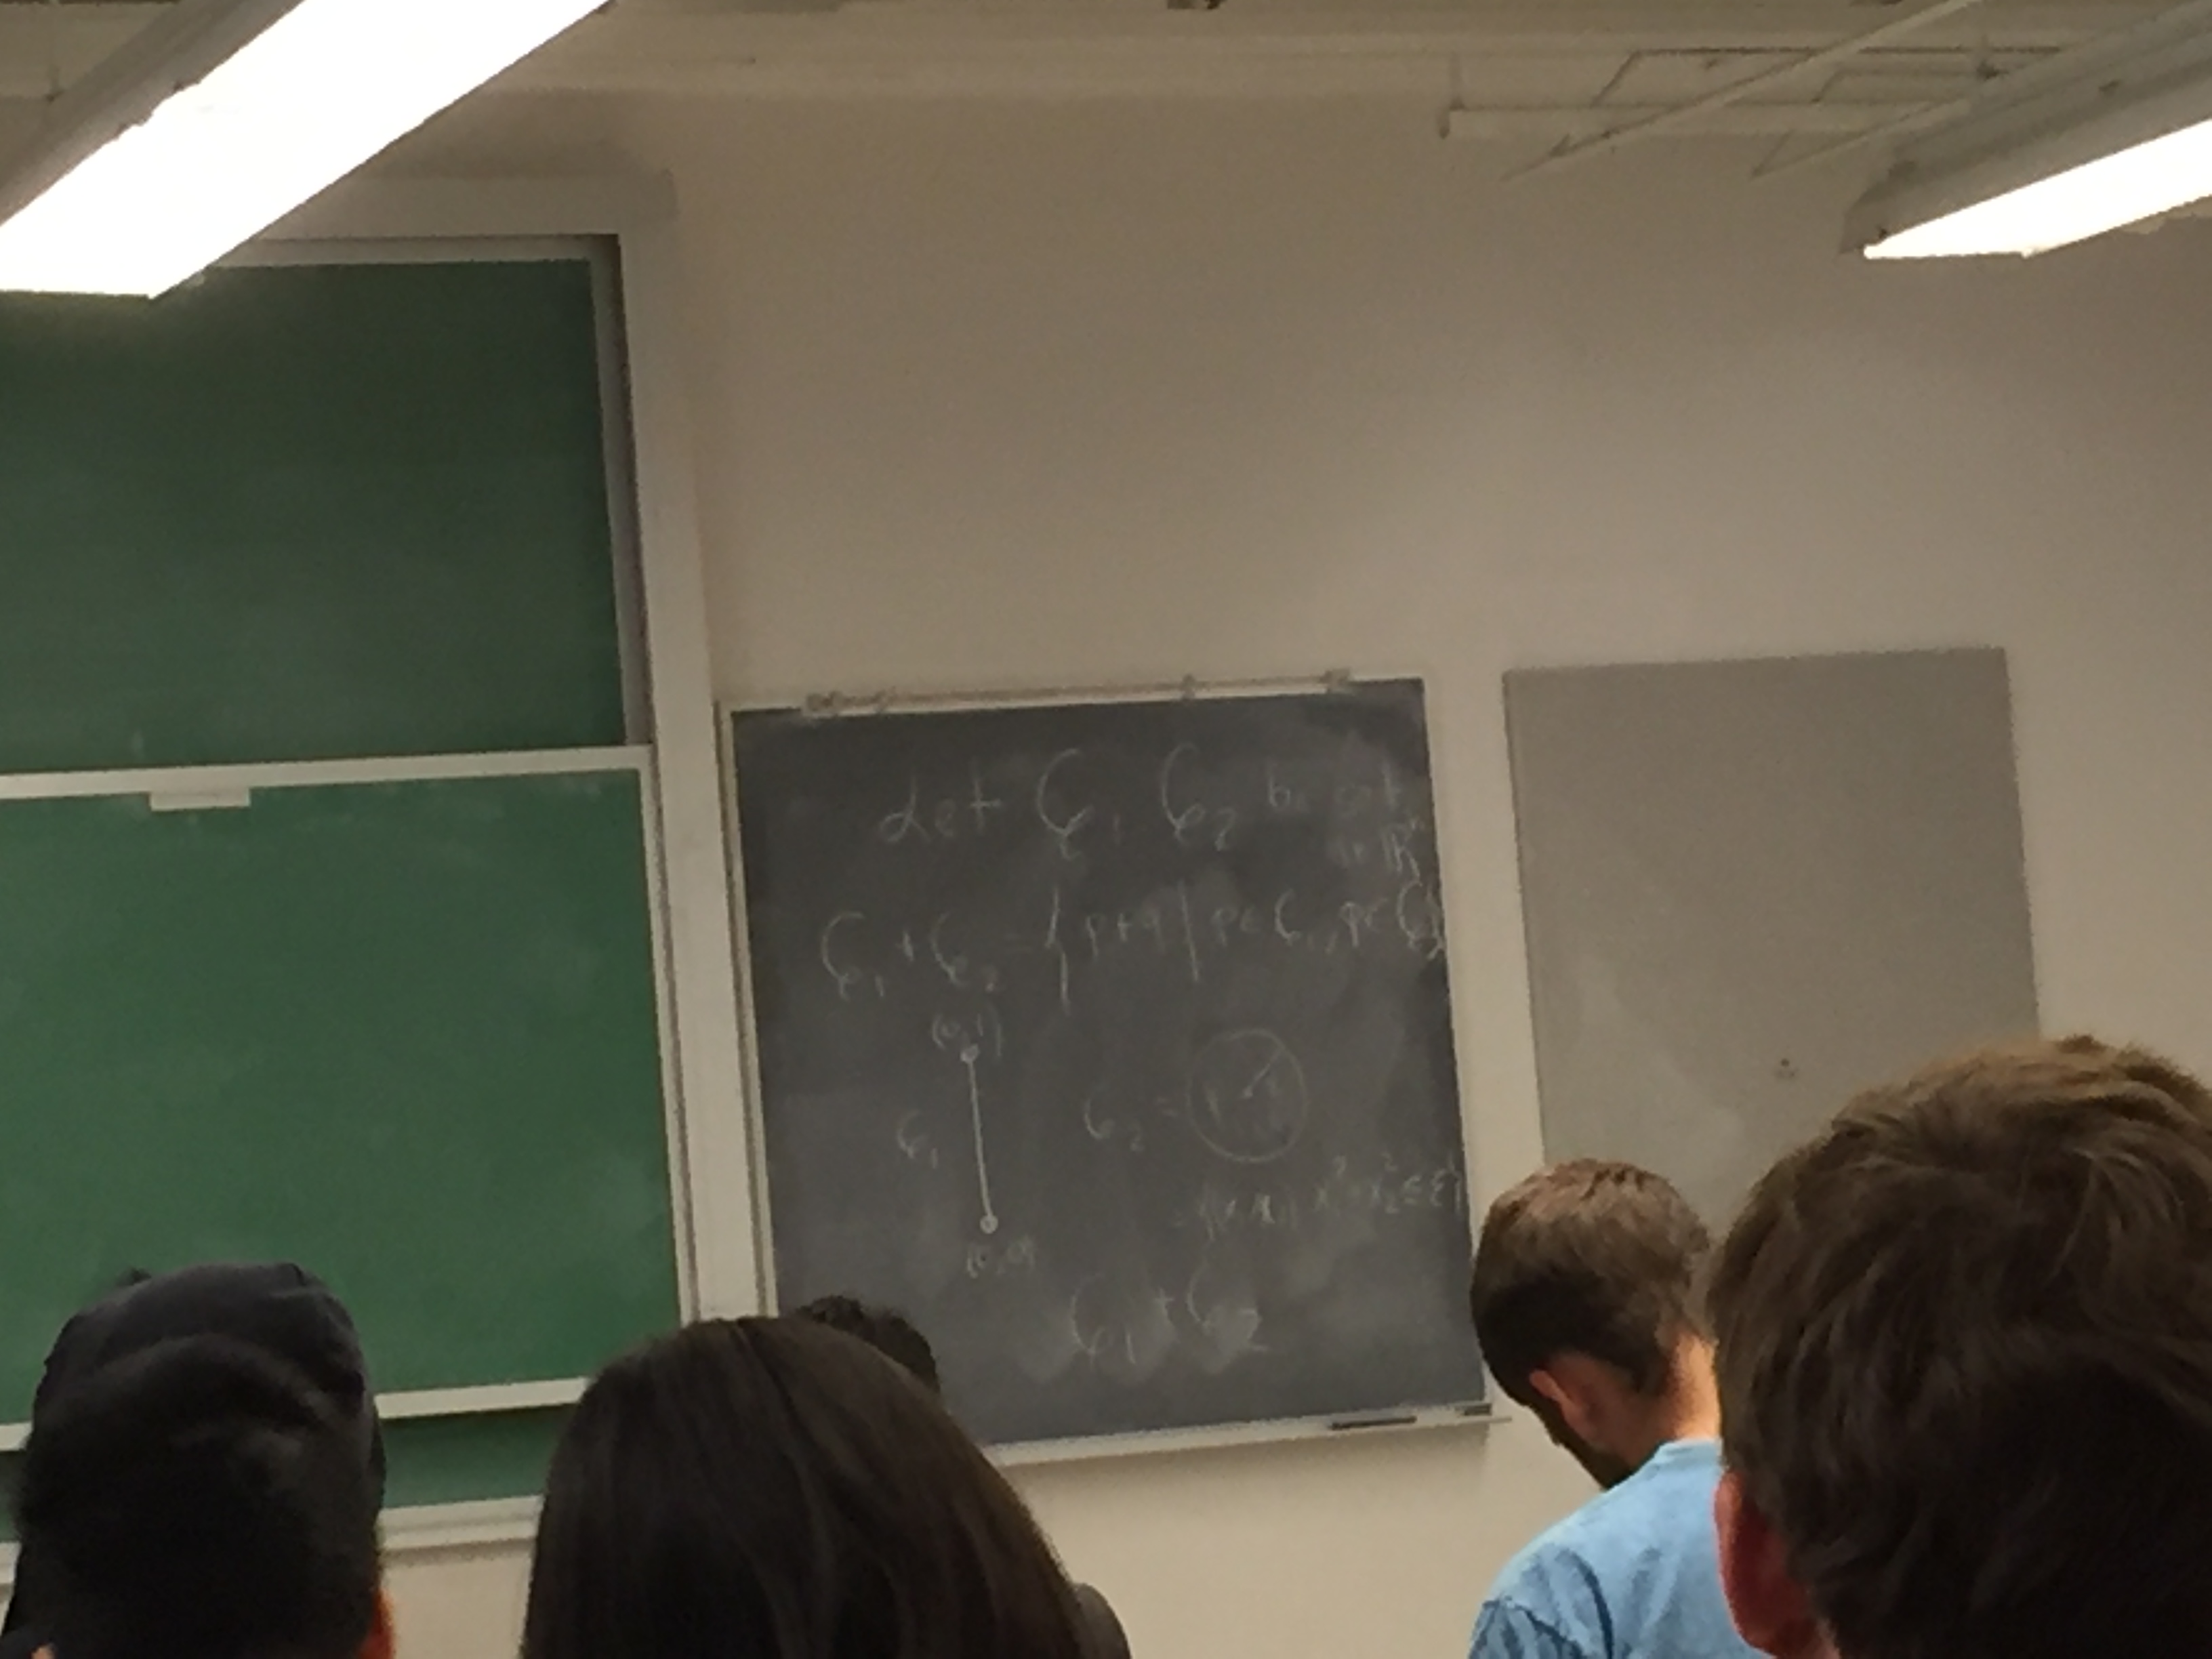 Let C₁ C₂ be set
in ℝⁿ
C₁ + C₂ = { p+q | p ∈ C₁, q ∈ C₂}
(0,1)
C₁
C₂ =
(0,0)
x₁² + x₂² ≤ ε²}
C₁ + C₂